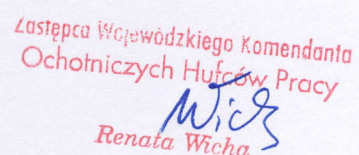 Zastępca Wojewódzkiego Komendanta
Ochotniczych Hufców Pracy
Wich
Renata Wicha